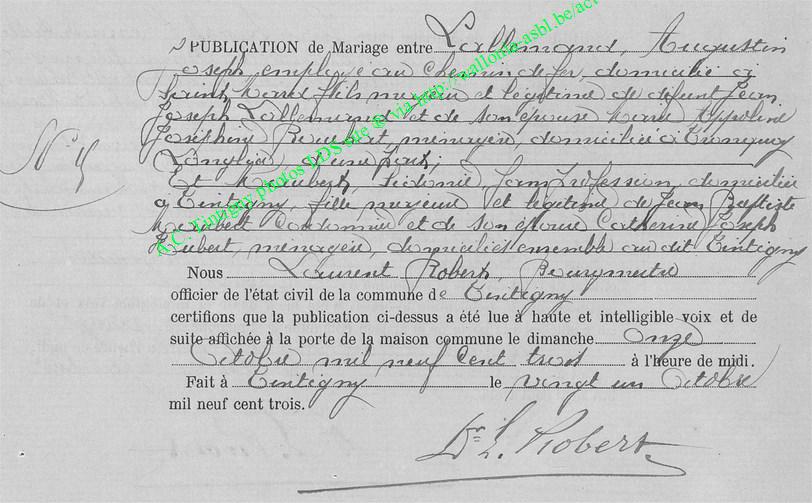 PUBLICATION de Mariage entre Lallemand, Augustin
Joseph, employé au chemin de fer, domicilié à
Saint Mard fils majeur et légitime de défunt Jean
Joseph Lallemand et de son épouse Marie Appoline
Joséphine ménagère, domiciliée à Tronquoy
Longlier, d'une part;
Et Sidonie, sans profession, domiciliée
à Tintigny, fille majeure et légitime de Jean Baptiste
cordonnier et de son épouse Catherine Joseph
Hubert, ménagère, domiciliés ensemble au dit Tintigny
N° 4
Nous Laurent Robert, Bourgmestre
officier de l'état civil de la commune de Tintigny
certifions que la publication ci-dessus a été lue à haute et intelligible voix et de
suite affichée à la porte de la maison commune le dimanche onze
octobre mil neuf cent trois à l'heure de midi.
Fait à Tintigny le vingt un octobre
mil neuf cent trois.
L. Robert
A.C. Tintigny photos LDS site © via http://wallonia-asbl.be/act